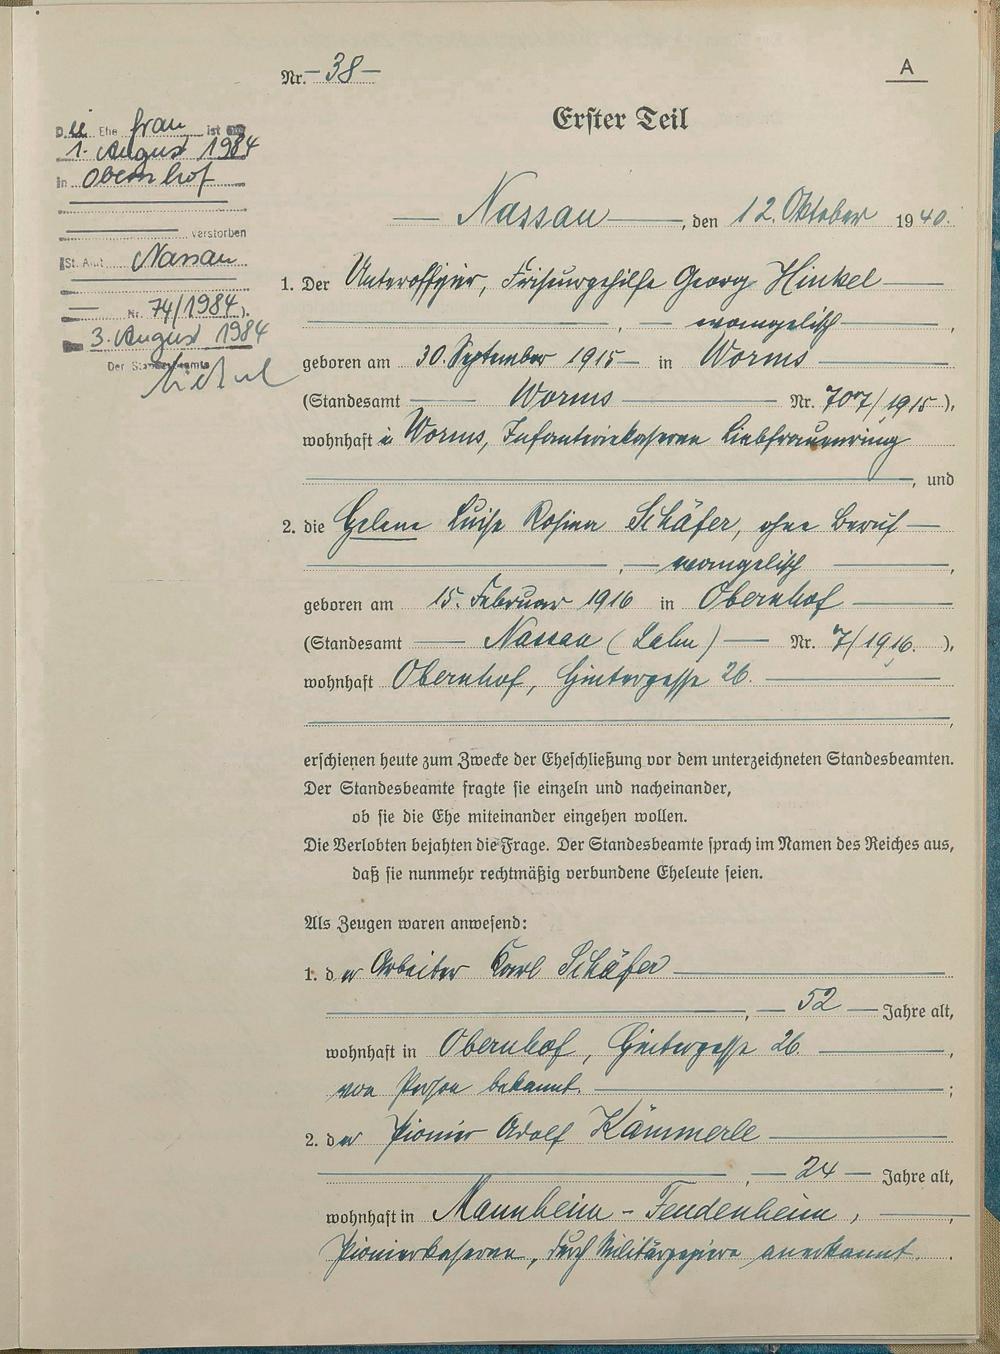 Nr. – 38 –
A
Erster Teil
Die Ehefrau ist am
1. August 1984
in Obernhof
verstorben
(St. Amt Nassau
Nr. 74/1984).
3. August 1984
Der Standesbeamte
Nassau, den 12. Oktober 1940.
1. Der Unteroffizier, Friseurgehilfe Georg Hinkel
, – evangelisch –,
geboren am 30. September 1915 – in Worms
(Standesamt – Worms – Nr. 707/1915 –),
wohnhaft in Worms, Infanteriekaserne Liebfrauenring
, und
2. die Helene Luise Rosina Schäfer, ohne Beruf –
, – evangelisch –,
geboren am 15. Februar 1916 in Obernhof
(Standesamt – Nassau (Lahn) – Nr. 7/1916. ),
wohnhaft Obernhof, Hintergasse 26.
,
erschienen heute zum Zwecke der Eheschließung vor dem unterzeichneten Standesbeamten.
Der Standesbeamte fragte sie einzeln und nacheinander,
ob sie die Ehe miteinander eingehen wollen.
Die Verlobten bejahten die Frage. Der Standesbeamte sprach im Namen des Reiches aus,
daß sie nunmehr rechtmäßig verbundene Eheleute seien.
Als Zeugen waren anwesend:
1. der Arbeiter Karl Schäfer
, – 52 – Jahre alt,
wohnhaft in Obernhof, Hintergasse 26. ,
von Person bekannt. ;
2. der Pionier Adolf Kämmerle
, – 24 – Jahre alt,
wohnhaft in Mannheim – Feudenheim, ,
Pionierkaserne, durch Militärpapiere anerkannt. .